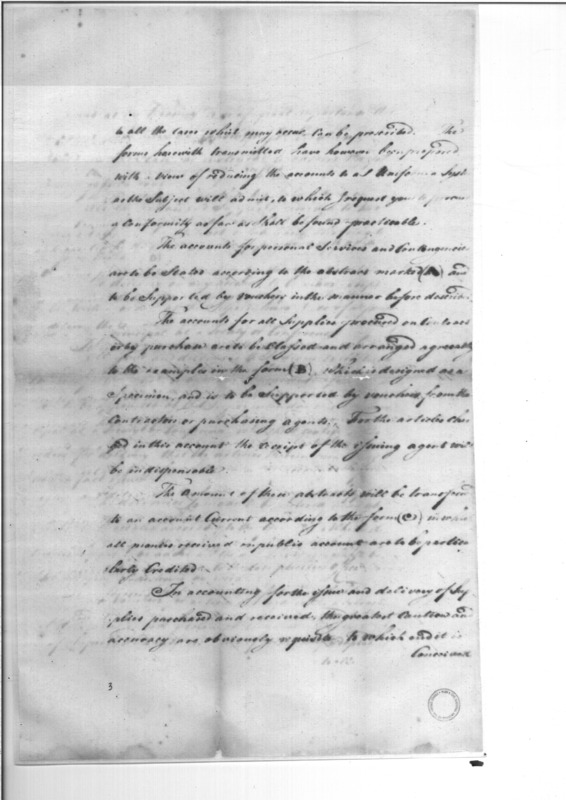 to all the cases which may occur, can be prescribed. The
forms herewith transmitted have however been prepared
with a view of reducing the accounts to as Uniform a Syst
as the Subject will admit, to which I request you to
a Conformity as far as shall be found practicable.
The accounts for personal Services and Contingencies
are to be Stated according to the abstract marked (A) and
to be Supported by vouchers in the manner before described
The accounts for all Supplies procured on Contract
or by purchase are to be Classed and arranged agreeably
to the examples in the form (B) which is designed as a
Specimen, and is to be Supported by vouchers from the
Contractors or purchasing agents. For the articles char
ged in this account the receipt of the issuing agent will
be indispensable.
The Amount of these abstracts will be transfered
to an account Current according to the form (C) in which
all monies received on public account are to be particu
larly Credited
In accounting for the issues and delivery of Sup
plies purchased and received, the greatest Caution and
accuracy are obviously requisite to which end it is
Conceived
3